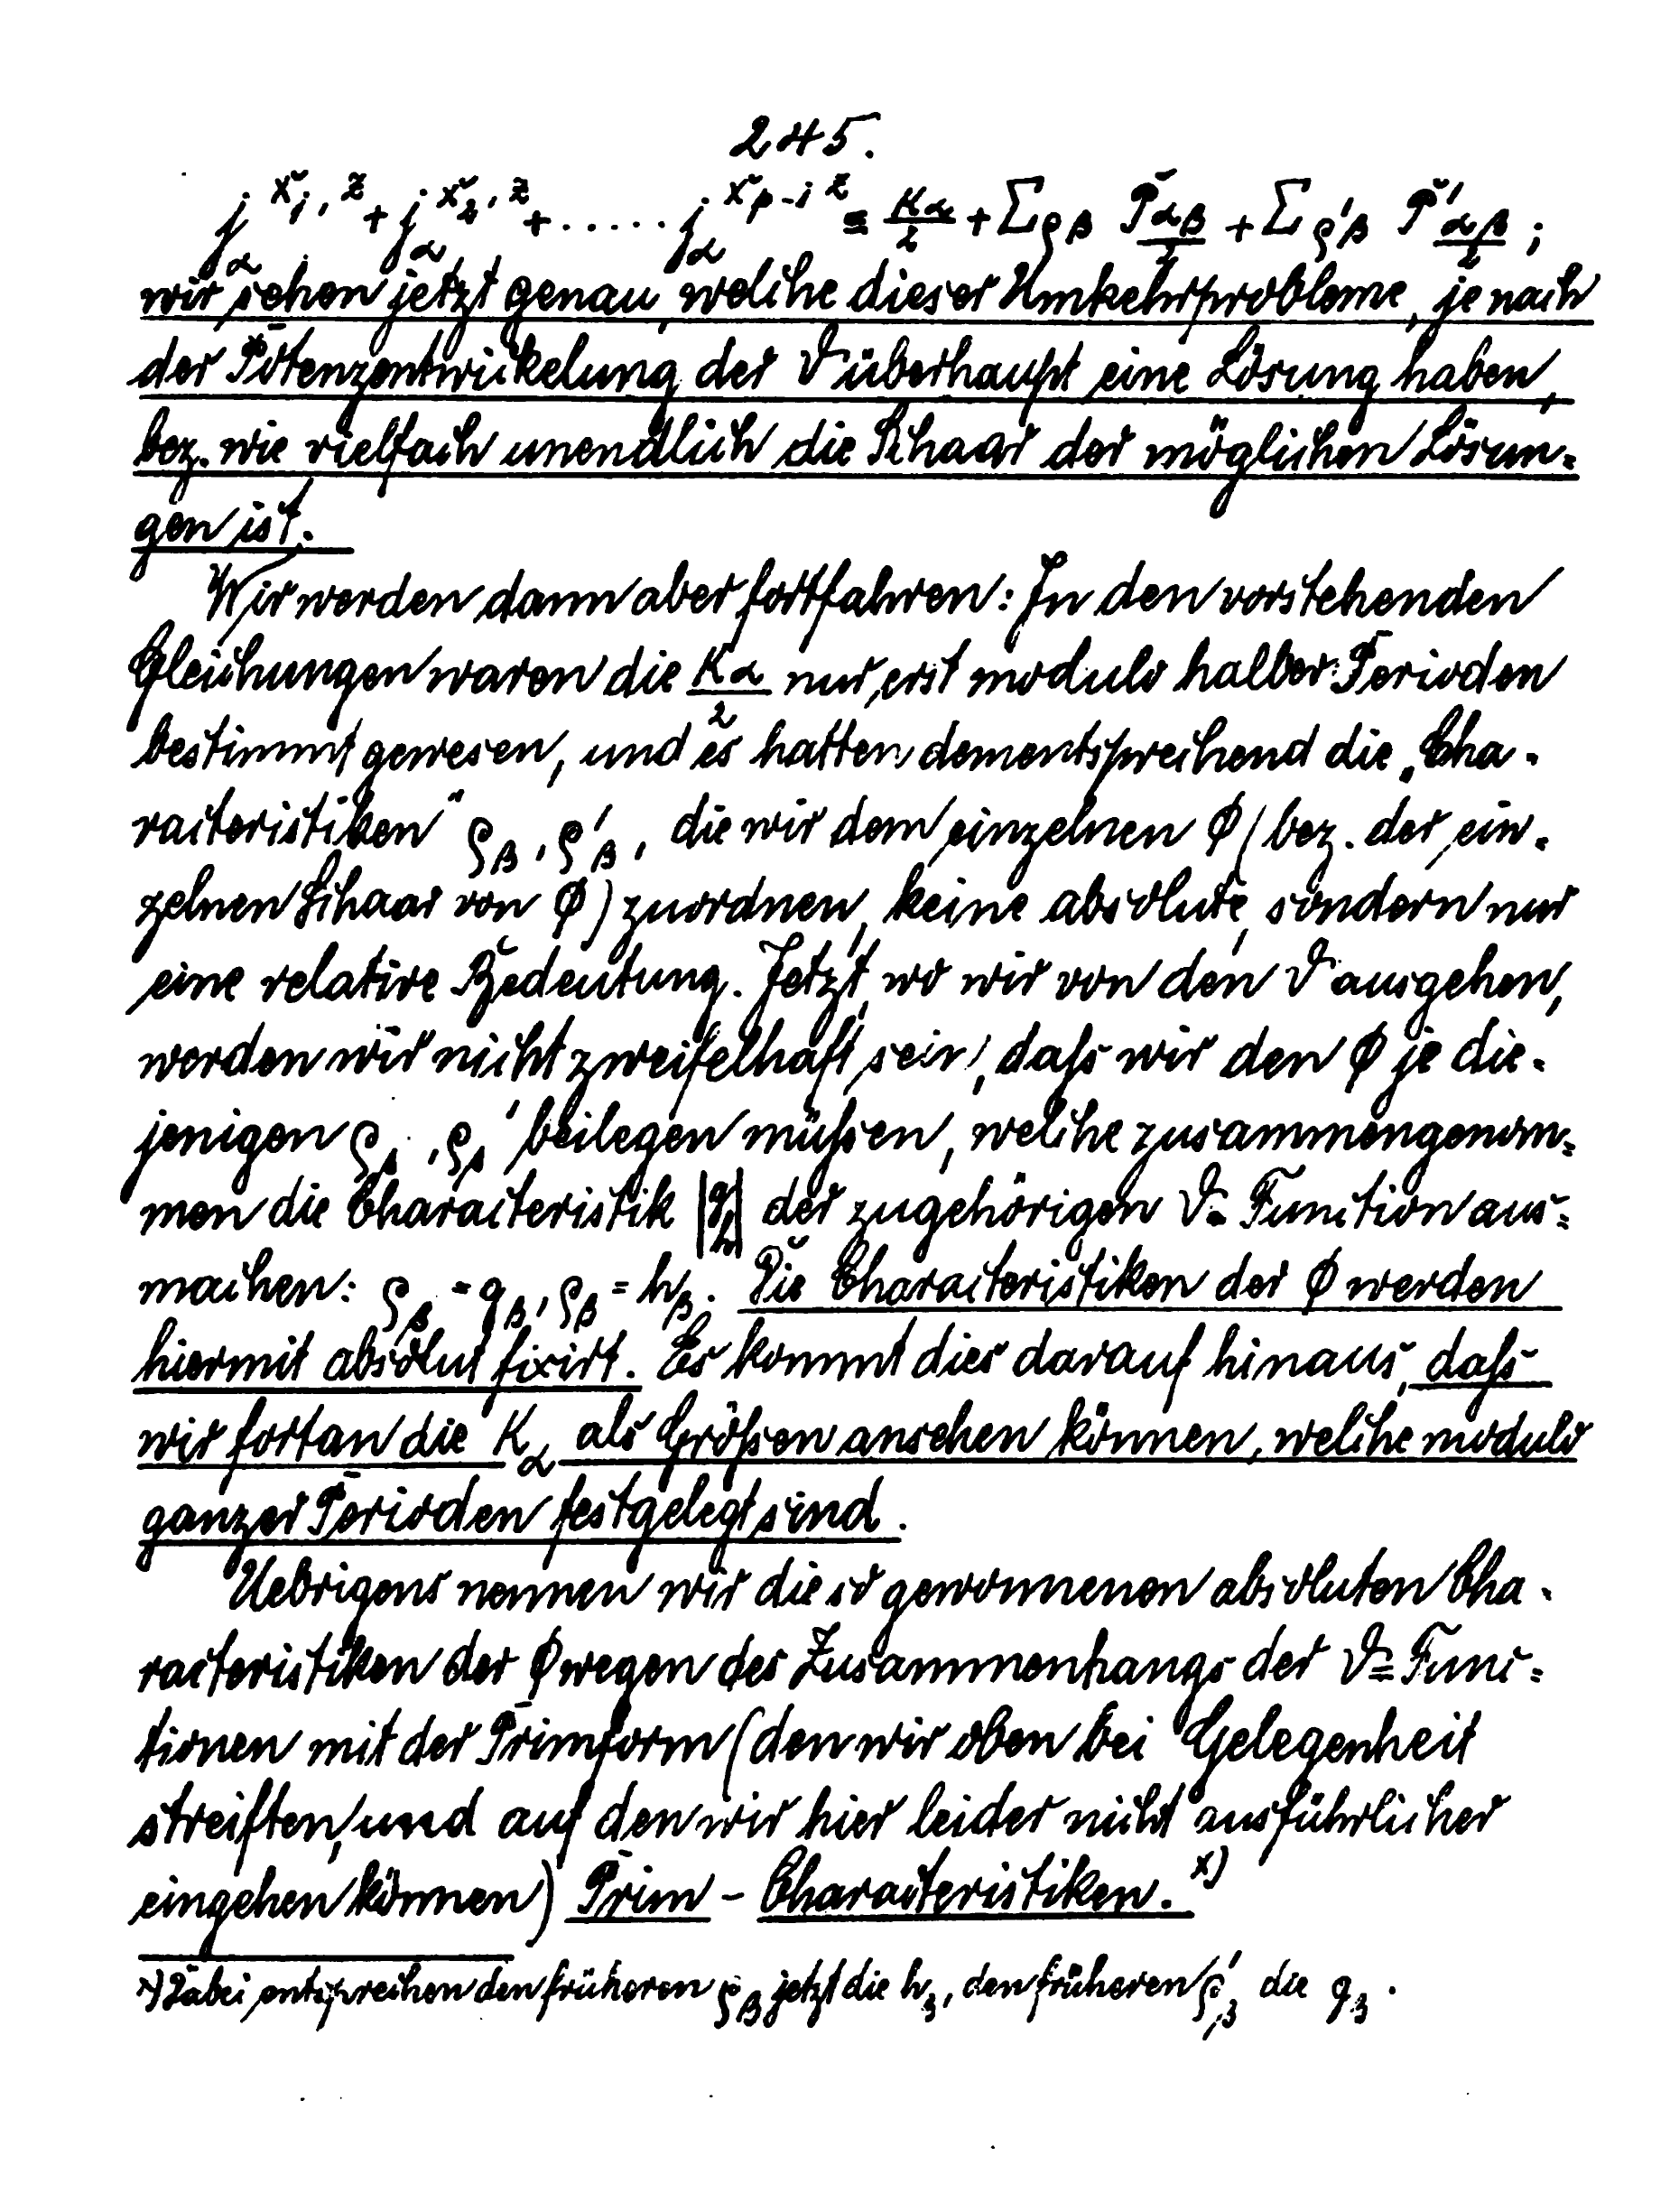 245.
j_α^{x_1, z} + j_α^{x_2, z} + ..... j_α^{x_{p-1} z} ≡ K_α/2 + Σ ρ_β P_{αβ}/2 + Σ ρ'_β P'_{αβ}/2 ;
wir sehen jetzt genau, welche dieser Umkehrprobleme, je nach
der Potenzentwickelung der ϑ überhaupt eine Lösung haben,
bez. wie vielfach unendlich die Schaar der möglichen Lösun=
gen ist.
Wir werden dann aber fortfahren: In den vorstehenden
Gleichungen waren die K_α/2 nur erst modulo halber Perioden
bestimmt gewesen, und es hatten dementsprechend die „Cha-
racteristiken" ρ_β, ρ'_β, die wir dem einzelnen φ (bez. der ein-
zelnen Schaar von φ) zuordnen, keine absolute, sondern nur
eine relative Bedeutung. Jetzt, wo wir von den ϑ ausgehen,
werden wir nicht zweifelhaft sein, daß wir den φ je die-
jenigen ρ_β, ρ_β' beilegen müßsen, welche zusammengenom=
men die Characteristik |g/h| der zugehörigen ϑ= Function aus=
machen: ρ_β = g_β, ρ_β = h_β. Die Characteristiken der φ werden
hiermit absolut fixirt. Es kommt dies darauf hinaus, daß
wir fortan die K_α als Größen ansehen können, welche modulo
ganzer Perioden festgelegt sind.
Uebrigens nennen wir die so gewonnenen absoluten Cha-
racteristiken der φ wegen des Zusammenhangs der ϑ= Func=
tionen mit der Primform (den wir oben bei Gelegenheit
streiften, und auf den wir hier leider nicht ausführlicher
eingehen können) Prim - Characteristiken. x)
x) Dabei entsprechen den früheren ρ_β jetzt die h_β, den früheren ρ'_β die g_β.